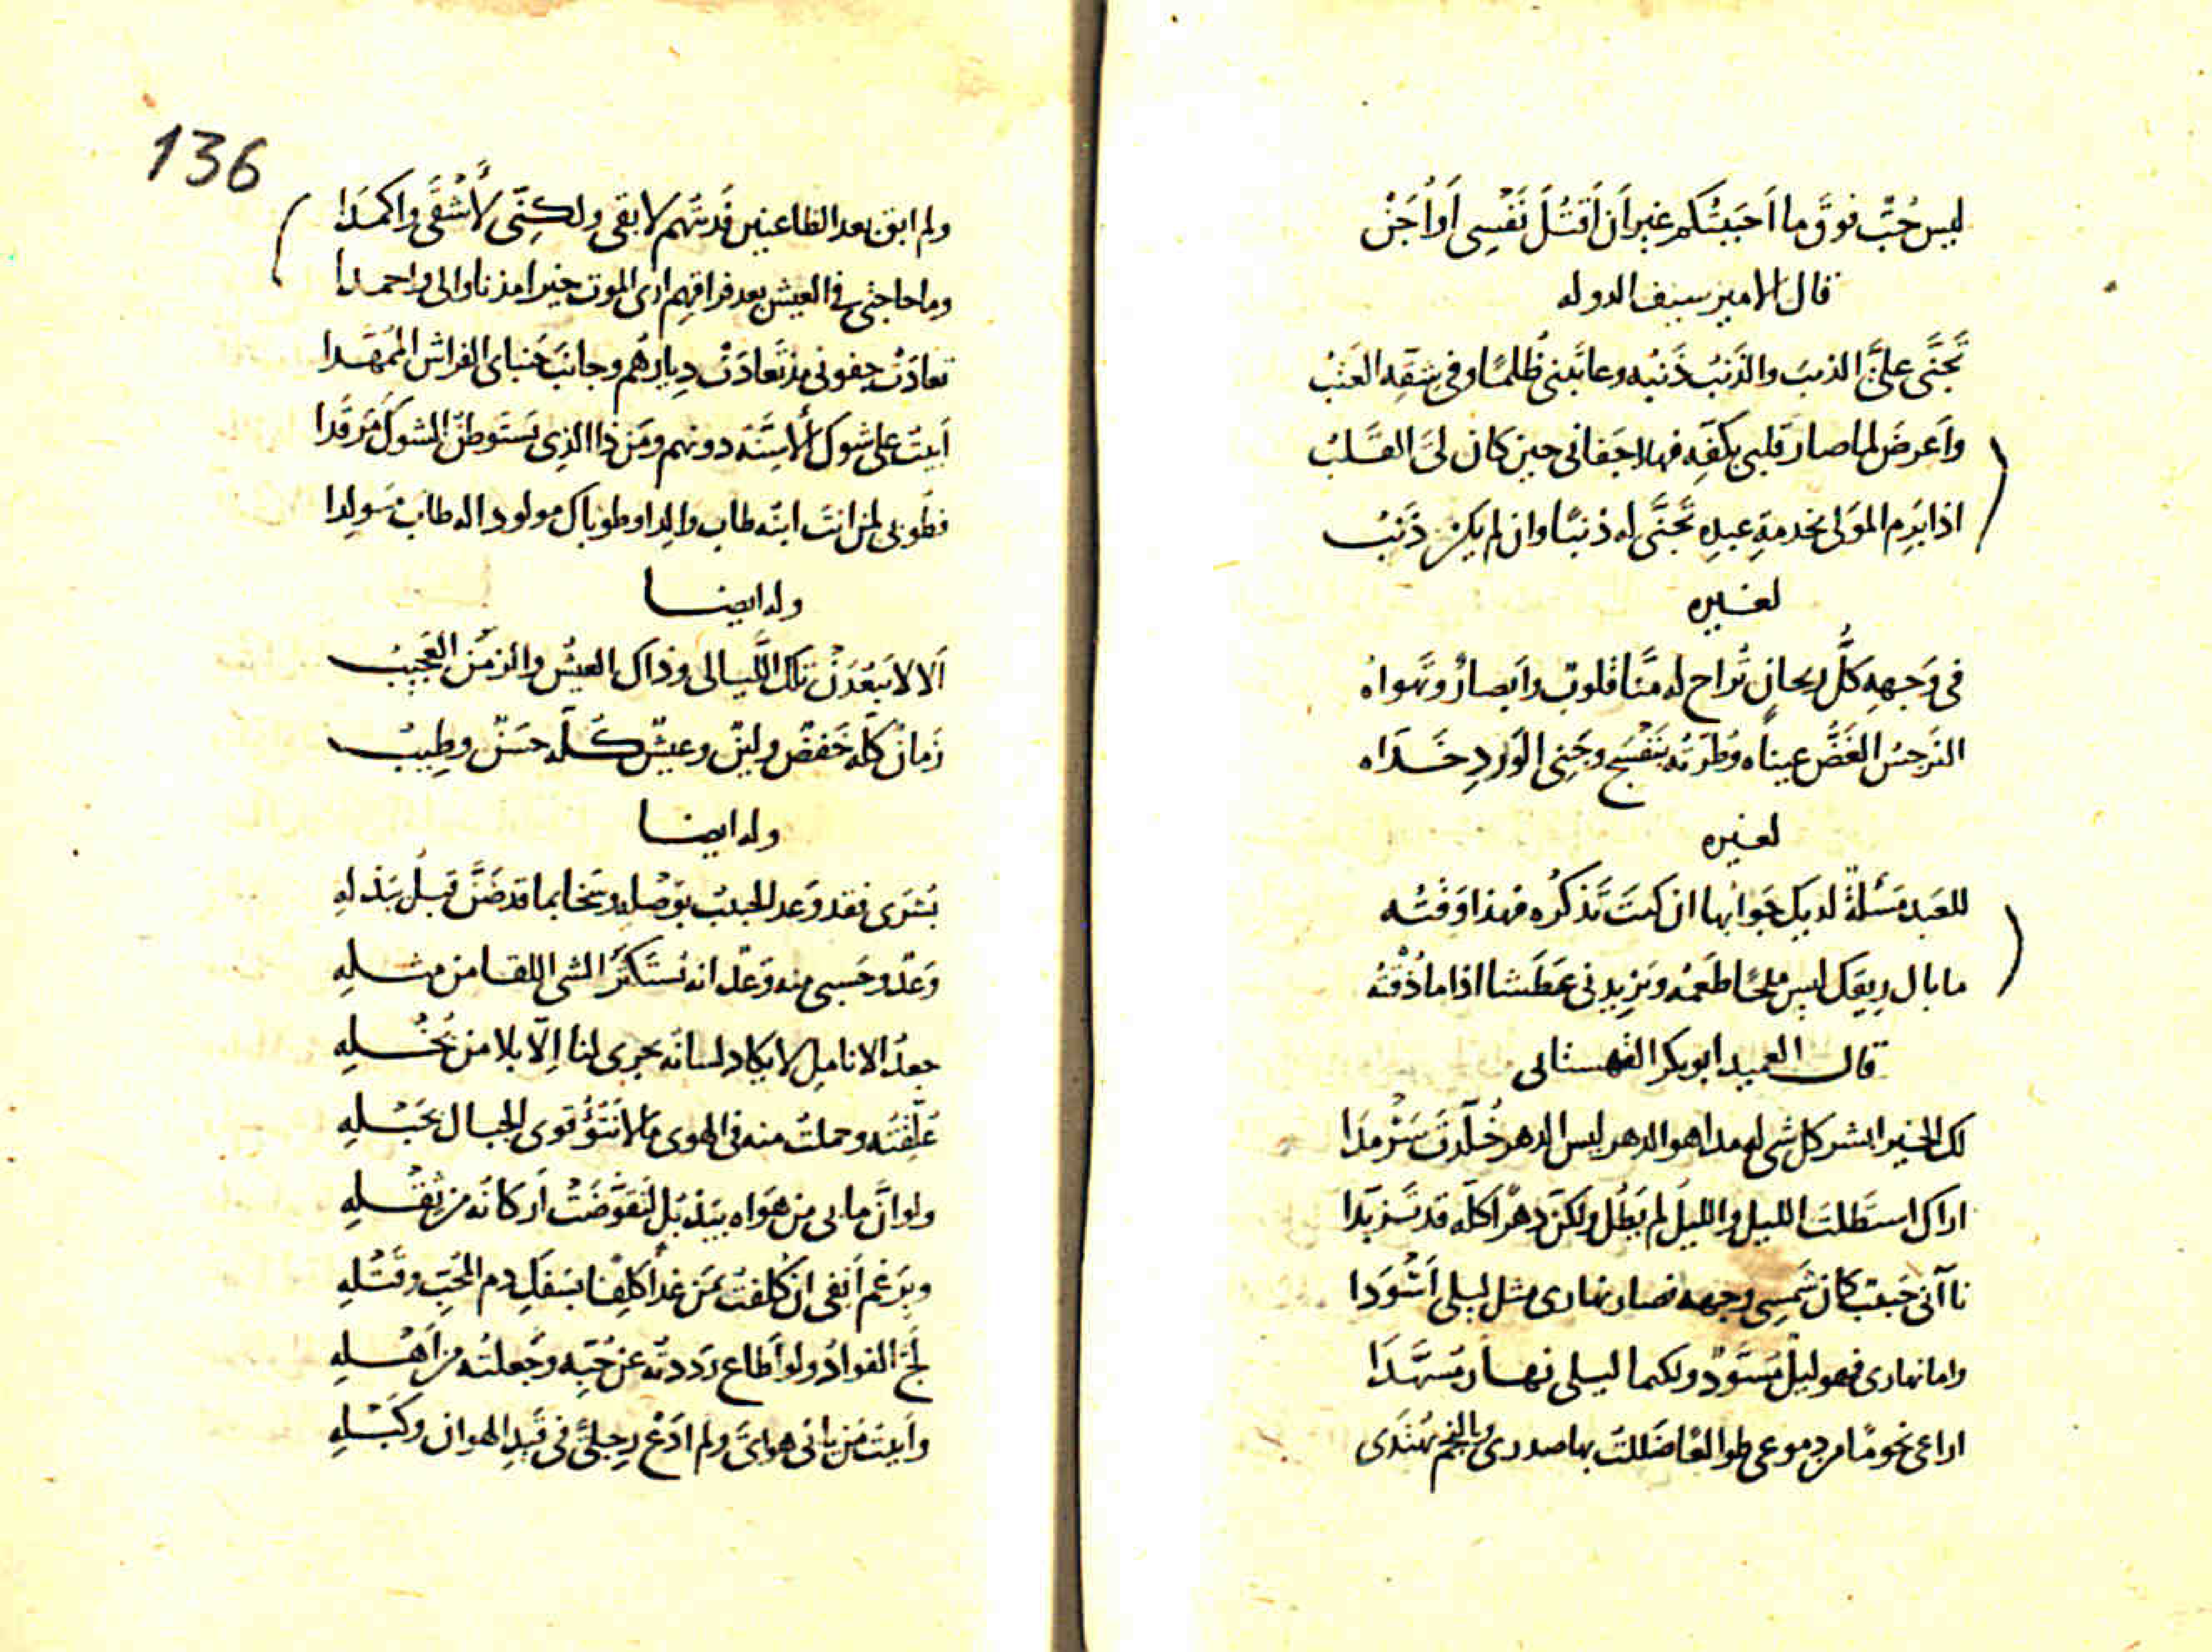 ليس حُبٌّ فوقَ ما اَحبَبتُكم غير اَن اَقتُلَ نَفسِى اَو اُجَنْ
قال الامير سيف الدوله
تَجَنَّى علىَّ الذنبَ والذَنبُ ذَنبُه وعاتَبنى ظُلمًا وفى شقِّه العَتبُ
واَعرضَ لما صار قلبى بكفِّه فهلا جَفانى حين كان لىَ القَلبُ
اذا بَرِم المَولى بخدمةِ عبدِه تَجَنَّى له ذنبًا وان لم يكن ذَنبُ
لغيره
فى وَجهِهِ كلُّ ريحانٍ تُراح له منَّا قلوبٌ واَبصارٌ وتَهواه
النَرجسُ الغَضُّ عيناه وطُرّته بَنَفْسَج وجَنِى الوَردِ خَدّاه
لغيره
للعَبد مَسْئلةٌ لديك جَوابُها ان كنتَ تَذكرُه فهذا وَقتُه
ما بال رِيقك ليس مِلحًا طَعمُه ويَزيدنى عَطَشا اذا ما ذُقْتُه
قال العميد ابو بكر القهستانى
لك الخير ابشر كل شى له مدا هو الدهر ليس الدهر خُلّدتَ سَرْمدَا
اراك استَطلتَ الليل والليلُ لم يَطُل ولكنّ دهرًا كلّه قد تَزيّدا
ناآنى حَبيبٌ كان شَمسِى وجهه فصار نهارى مثل ليلى اَسْوَدا
واما نهارى فهو ليلٌ مسَوّدٌ ولكما ليلى نهار مسَهّدَا
اراعى نجومًا من دموعى طوالعًا ضَللتُ بها صدرى وبالنجم يُهتَدى
136
ولم ابق بعد الظاعنين فَدَيتُهم لابقى ولكِنّى لأَشْقَى واكمدَا
وما حاجتى فى العيش بعد فراقِهم ارى الموت خيرا مذ ناوا لى واحمدا
تعادَتْ جفونى مذ تَعادَتْ دِيارهُم وجانبَ جَنباى الفراش المُمَهّدا
اَبيتُ على شوك الأسِنّه دونهم ومَن ذا الذى يَستَوطنُ الشوكَ مَرقَدا
فطُوبى لمن انتَ ابنُه طاب والدا وطوباك مولود اله طابَ مَولِدا
وله ايضا
اَلا لا تَبْعُدَنْ تلك اللَّيالى وذاك العيشُ والزمَن العَجِيبُ
زَمانٌ كلّه خَفضٌ ولينٌ وعيشٌ كلّه حسَنٌ وطِيبُ
وله ايضا
بُشرَى فقد وَعد الحبيبُ بوَصْلِه وسخا بما قد ضَنَّ قبلُ ببَذلهِ
وَعدٌ وحَسبى منه وَعدٌ انه يُستَكثَرُ الشى اللقا من مثلِهِ
جعدُ الاناملِ لا يكاد لسانُه يجرى لنا اِلّا بلا من بُخْلِهِ
عُلّقتُه وحملتُ منه فى الهوى ما لا تَنُؤُ قوى الجبال بحَمْلِهِ
ولو اَنَّ ما بى من هَواه بيَذْبُل لتَقوَّضَتْ اَركانُه من ثِقْلِهِ
وبرَغم اَنفى ان كَلفتُ بمَن غدا كَلِفًا بسَفكِ دم المُحِبِّ وقَتْلِهِ
لَجَّ الفوادُ ولو اَطاع رَدَدتُه عن حُبّه وجَعلتُه من اَهْلِهِ
واَبيتُ مَن يانى هواىَ ولم اَدَعْ رِجلىَّ فى قَيدِ الهوان وكَبْلِهِ